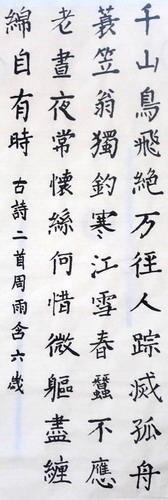 千山鳥飛絕万徑人踪滅孤舟
蓑笠翁獨釣寒江雪春蠶不應
老晝夜常懷絲何惜微軀盡纏
綿自有時 古詩二首周雨含六歲